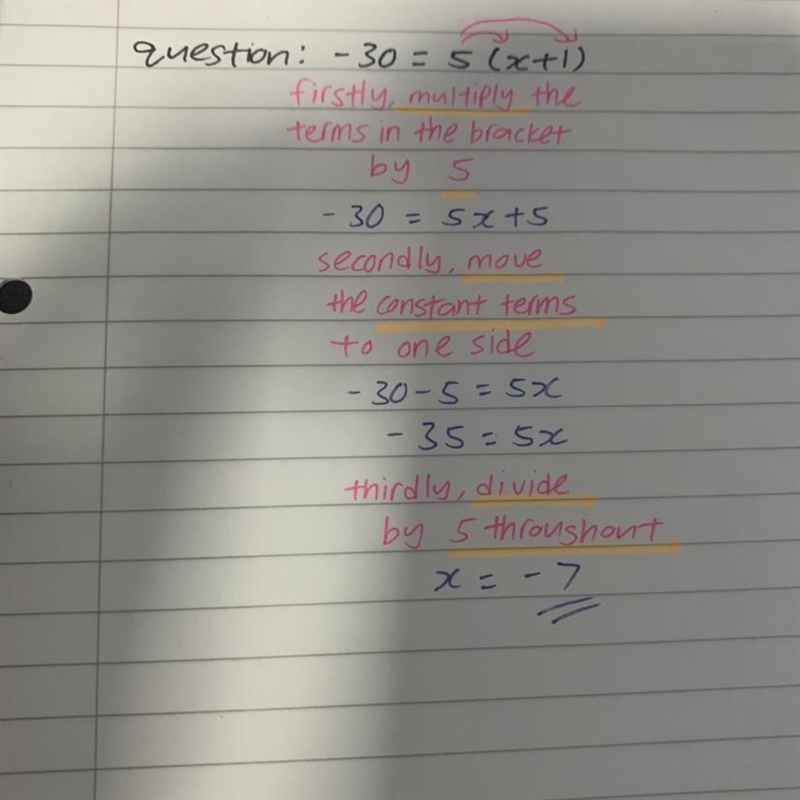 question: -30 = 5 (x+1)
firstly, multiply the
terms in the bracket
by 5
-30 = 5x+5
secondly, move
the constant terms
to one side
-30-5 = 5x
-35 = 5x
thirdly, divide
by 5 throughout
x = -7